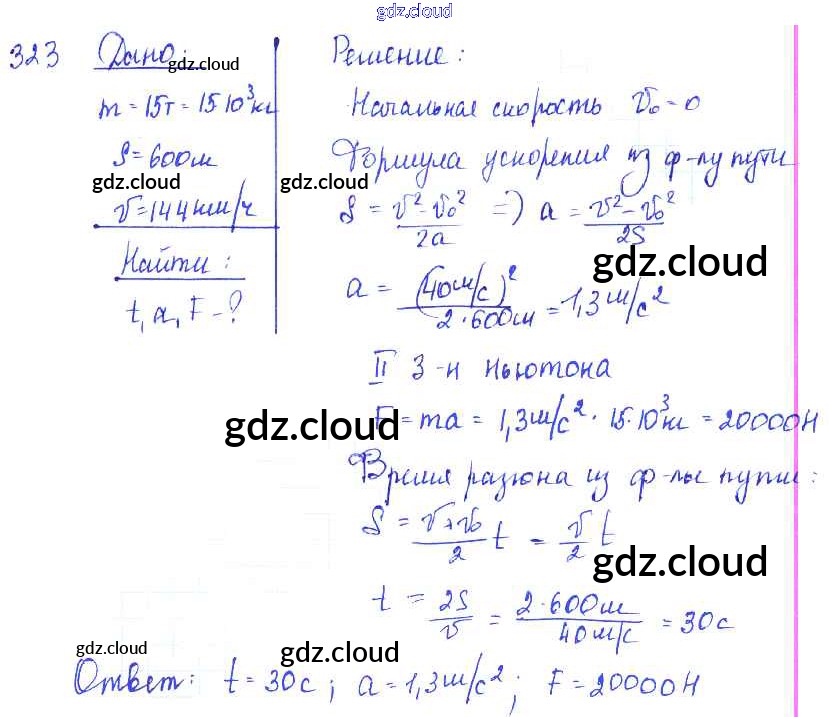 gdz.cloud
gdz.cloud
323 Дано:
gdz.cloud
m = 15т = 15·10³кг
S = 600м
gdz.cloud
v = 144км/ч
Найти:
t, a, F - ?
Решение:
Начальная скорость v₀ = 0
Формула ускорения из ф-лу пути
gdz.cloud
S = v² - v₀² / 2a => a = v² - v₀² / 2S
gdz.cloud
a = (40м/с)² / 2·600м = 1,3м/с²
II З-н Ньютона
gdz.cloud
F = ma = 1,3м/с² · 15·10³кг = 20000Н
Время разгона из ф-лы пути:
S = v + v₀ / 2 t = v / 2 t
gdz.cloud
t = 2S / v = 2·600м / 40м/с = 30с
gdz.cloud
gdz.cloud
gdz.cloud
Ответ: t = 30с; a = 1,3м/с²; F = 20000Н